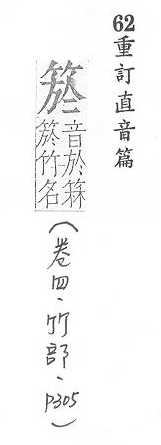 62重訂直音篇
箊
音於箖
箊竹名
(卷四、竹部、p305)